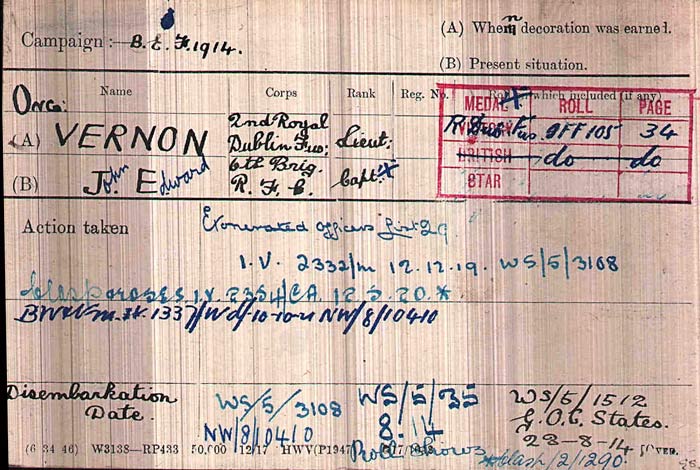 Campaign :- B. E. F. 1914.
(A) When decoration was earned.
(B) Present situation.
Name Corps Rank Reg. No. Roll on which included (if any)
MEDAL ROLL PAGE
Offrs:
(A) VERNON 2nd Royal Dublin Fus: Lieut:
R. Dub. Fus. OFF 105 34
BRITISH do do
STAR
(B) John Edward 6th Brig. R. F. C. Capt:
Action taken
Exonerated officers list 29
I. V. 2332/m 12.12.19. WS/5/3108
Clasp & roses I.V. 2354/CA. 12.5.20.*
NW/8/10410
Disembarkation Date.
WS/5/3108
NW/8/10410
WS/5/35
8.14
Roll Shows
WS/5/1512
G.O.C. States.
23-8-14
*clasp/2/1290
(6 34 46) W3138—RP433 50,000 12/17 HWV(P1947)